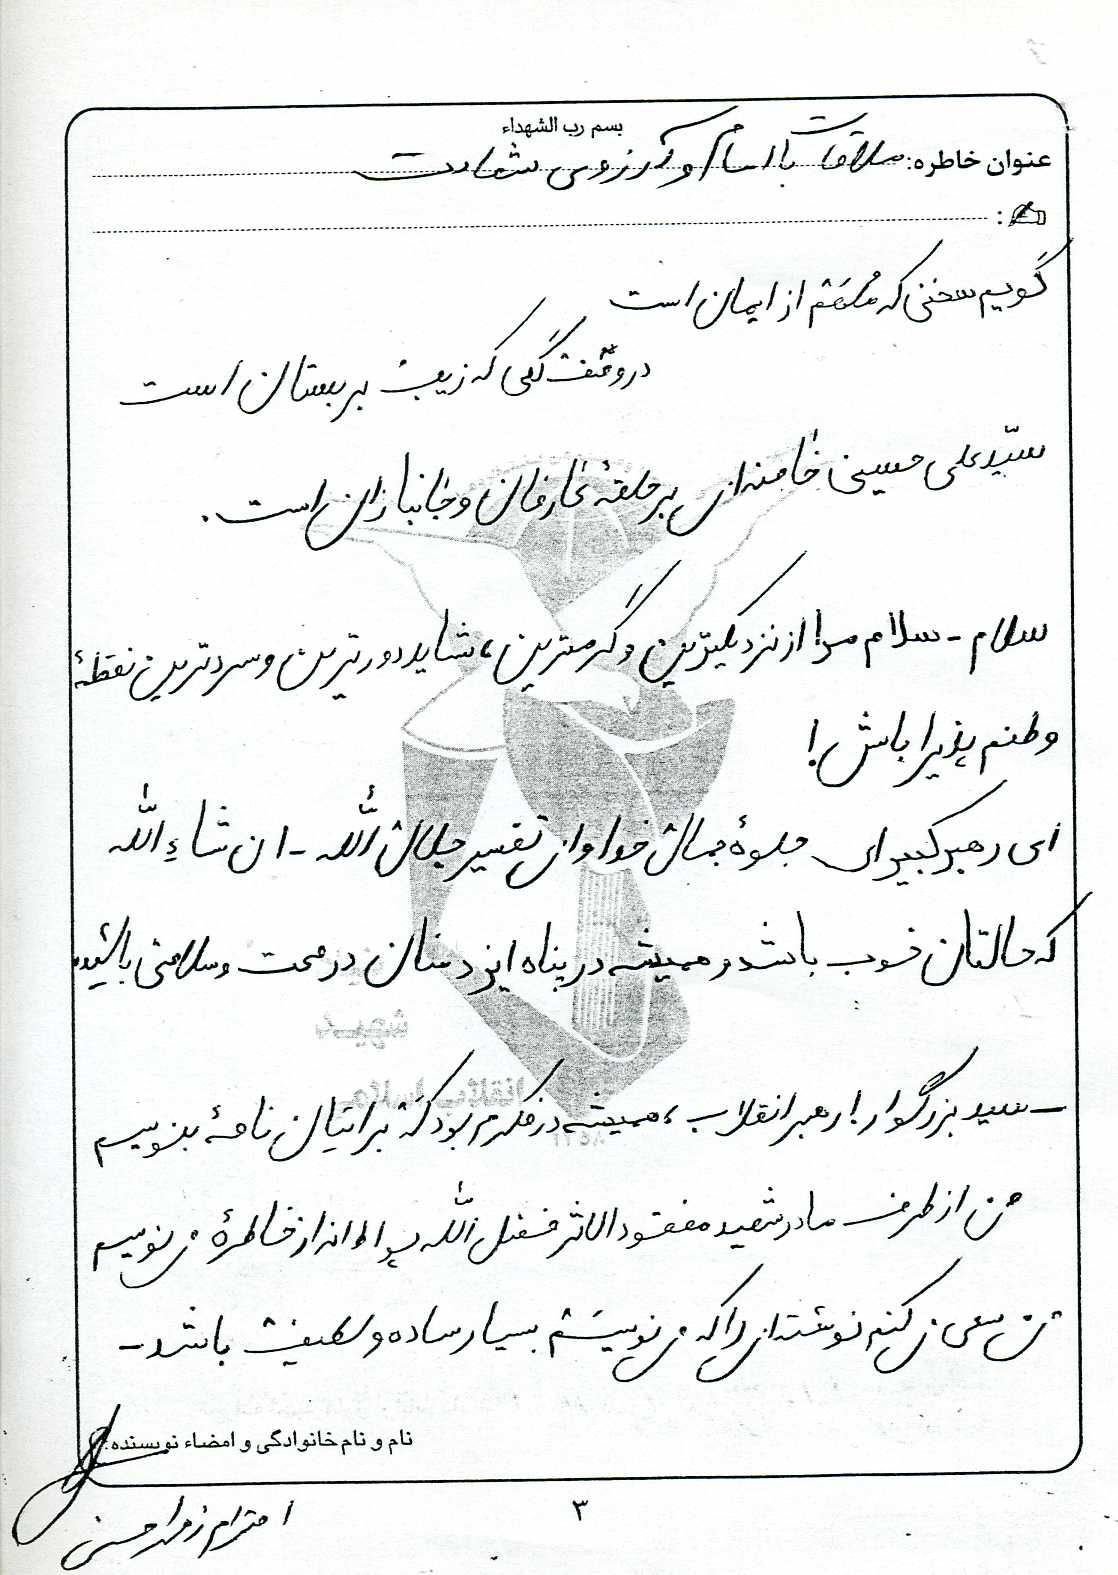 بسم رب الشهداء
عنوان خاطره: ملاقات با امام و آرزوی شهادت
:
گویم سخنی که ملهم از ایمان است
در وصف گلی که زینت بر بستان است
سیّد علی حسینی خامنه‌ای بر حلقهٔ عارفان و جانبازان است.
سلام - سلام مرا از نزدیکترین و گرمترین، شاید دورترین و سردترین نقطهٔ
وطنم پذیرا باش!
ای رهبر کبیر ای جلوهٔ جمال خدا و ای تفسیر جلال اللّه - ان شاءِ اللّه
که حالتان خوب باشد و همیشه در پناه ایزد منان در صحت و سلامتی باشید
- سید بزرگوار! رهبر انقلاب، همیشه در فکرم بود که برایتان نامهٔ بنویسم
من از طرف مادر شهید مفقود الاثر فضل اللّه خاطرهٔ می نویسم
من سعی می کنم نوشته‌ای را که می نویسم بسیار ساده و لطیف باشد -
نام و نام خانوادگی و امضاء نویسنده:
۳
احترام زهرا حسنی